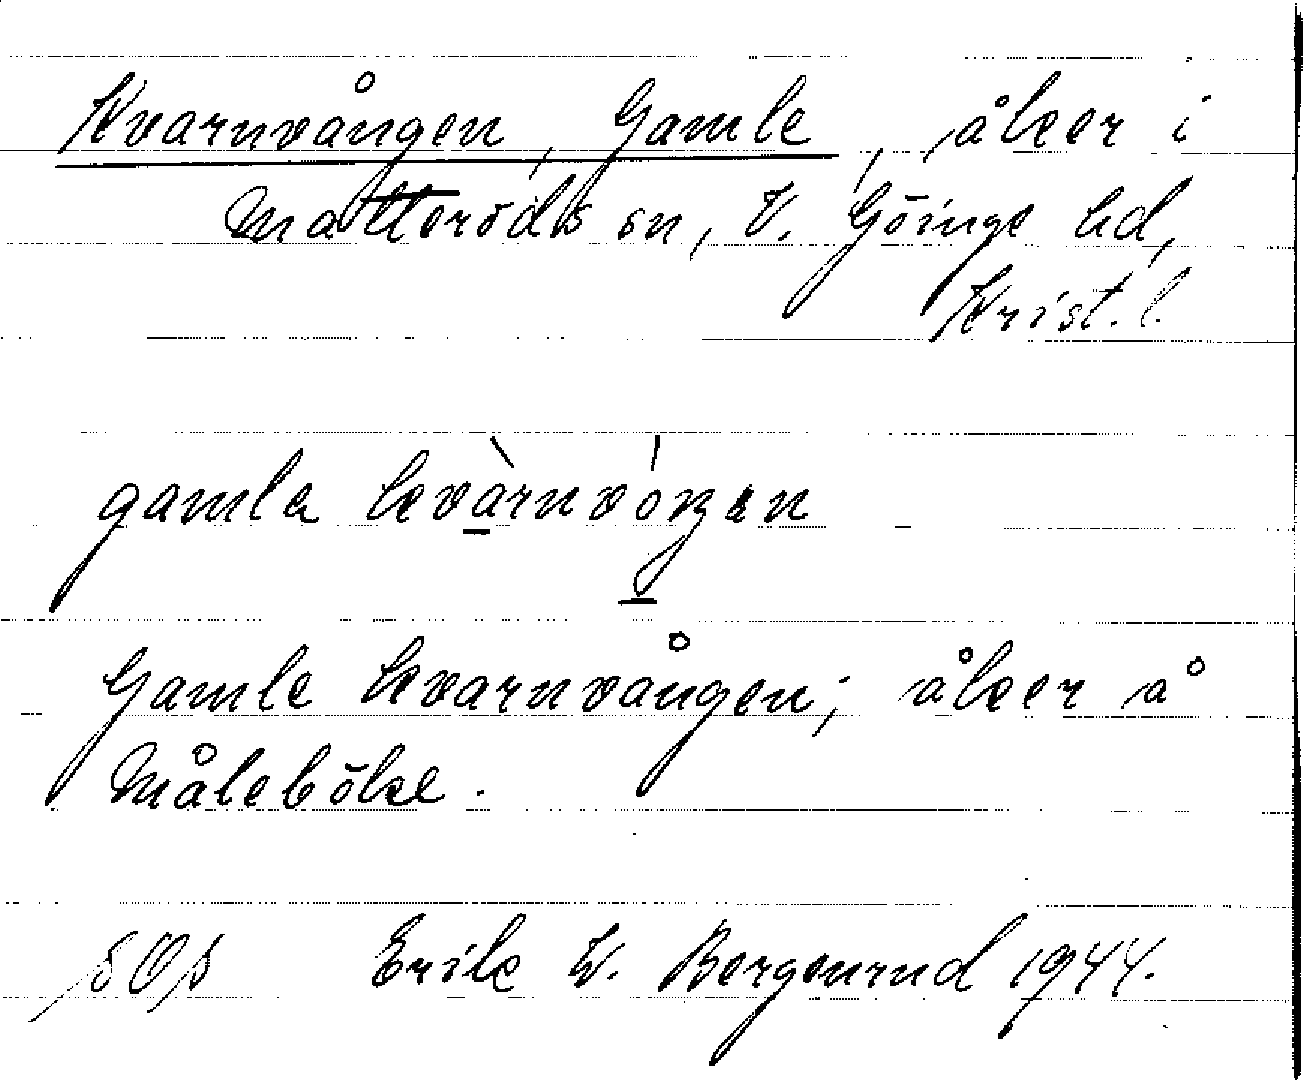 Kvarnvången, Gamle, åker i
Matteröds sn, V. Göinge hd,
Krist. l.
gamla kvàrnvóŋen
Gamle kvarnvången; åker å
Måleböke.
Erik W. Bergenrud 1944.